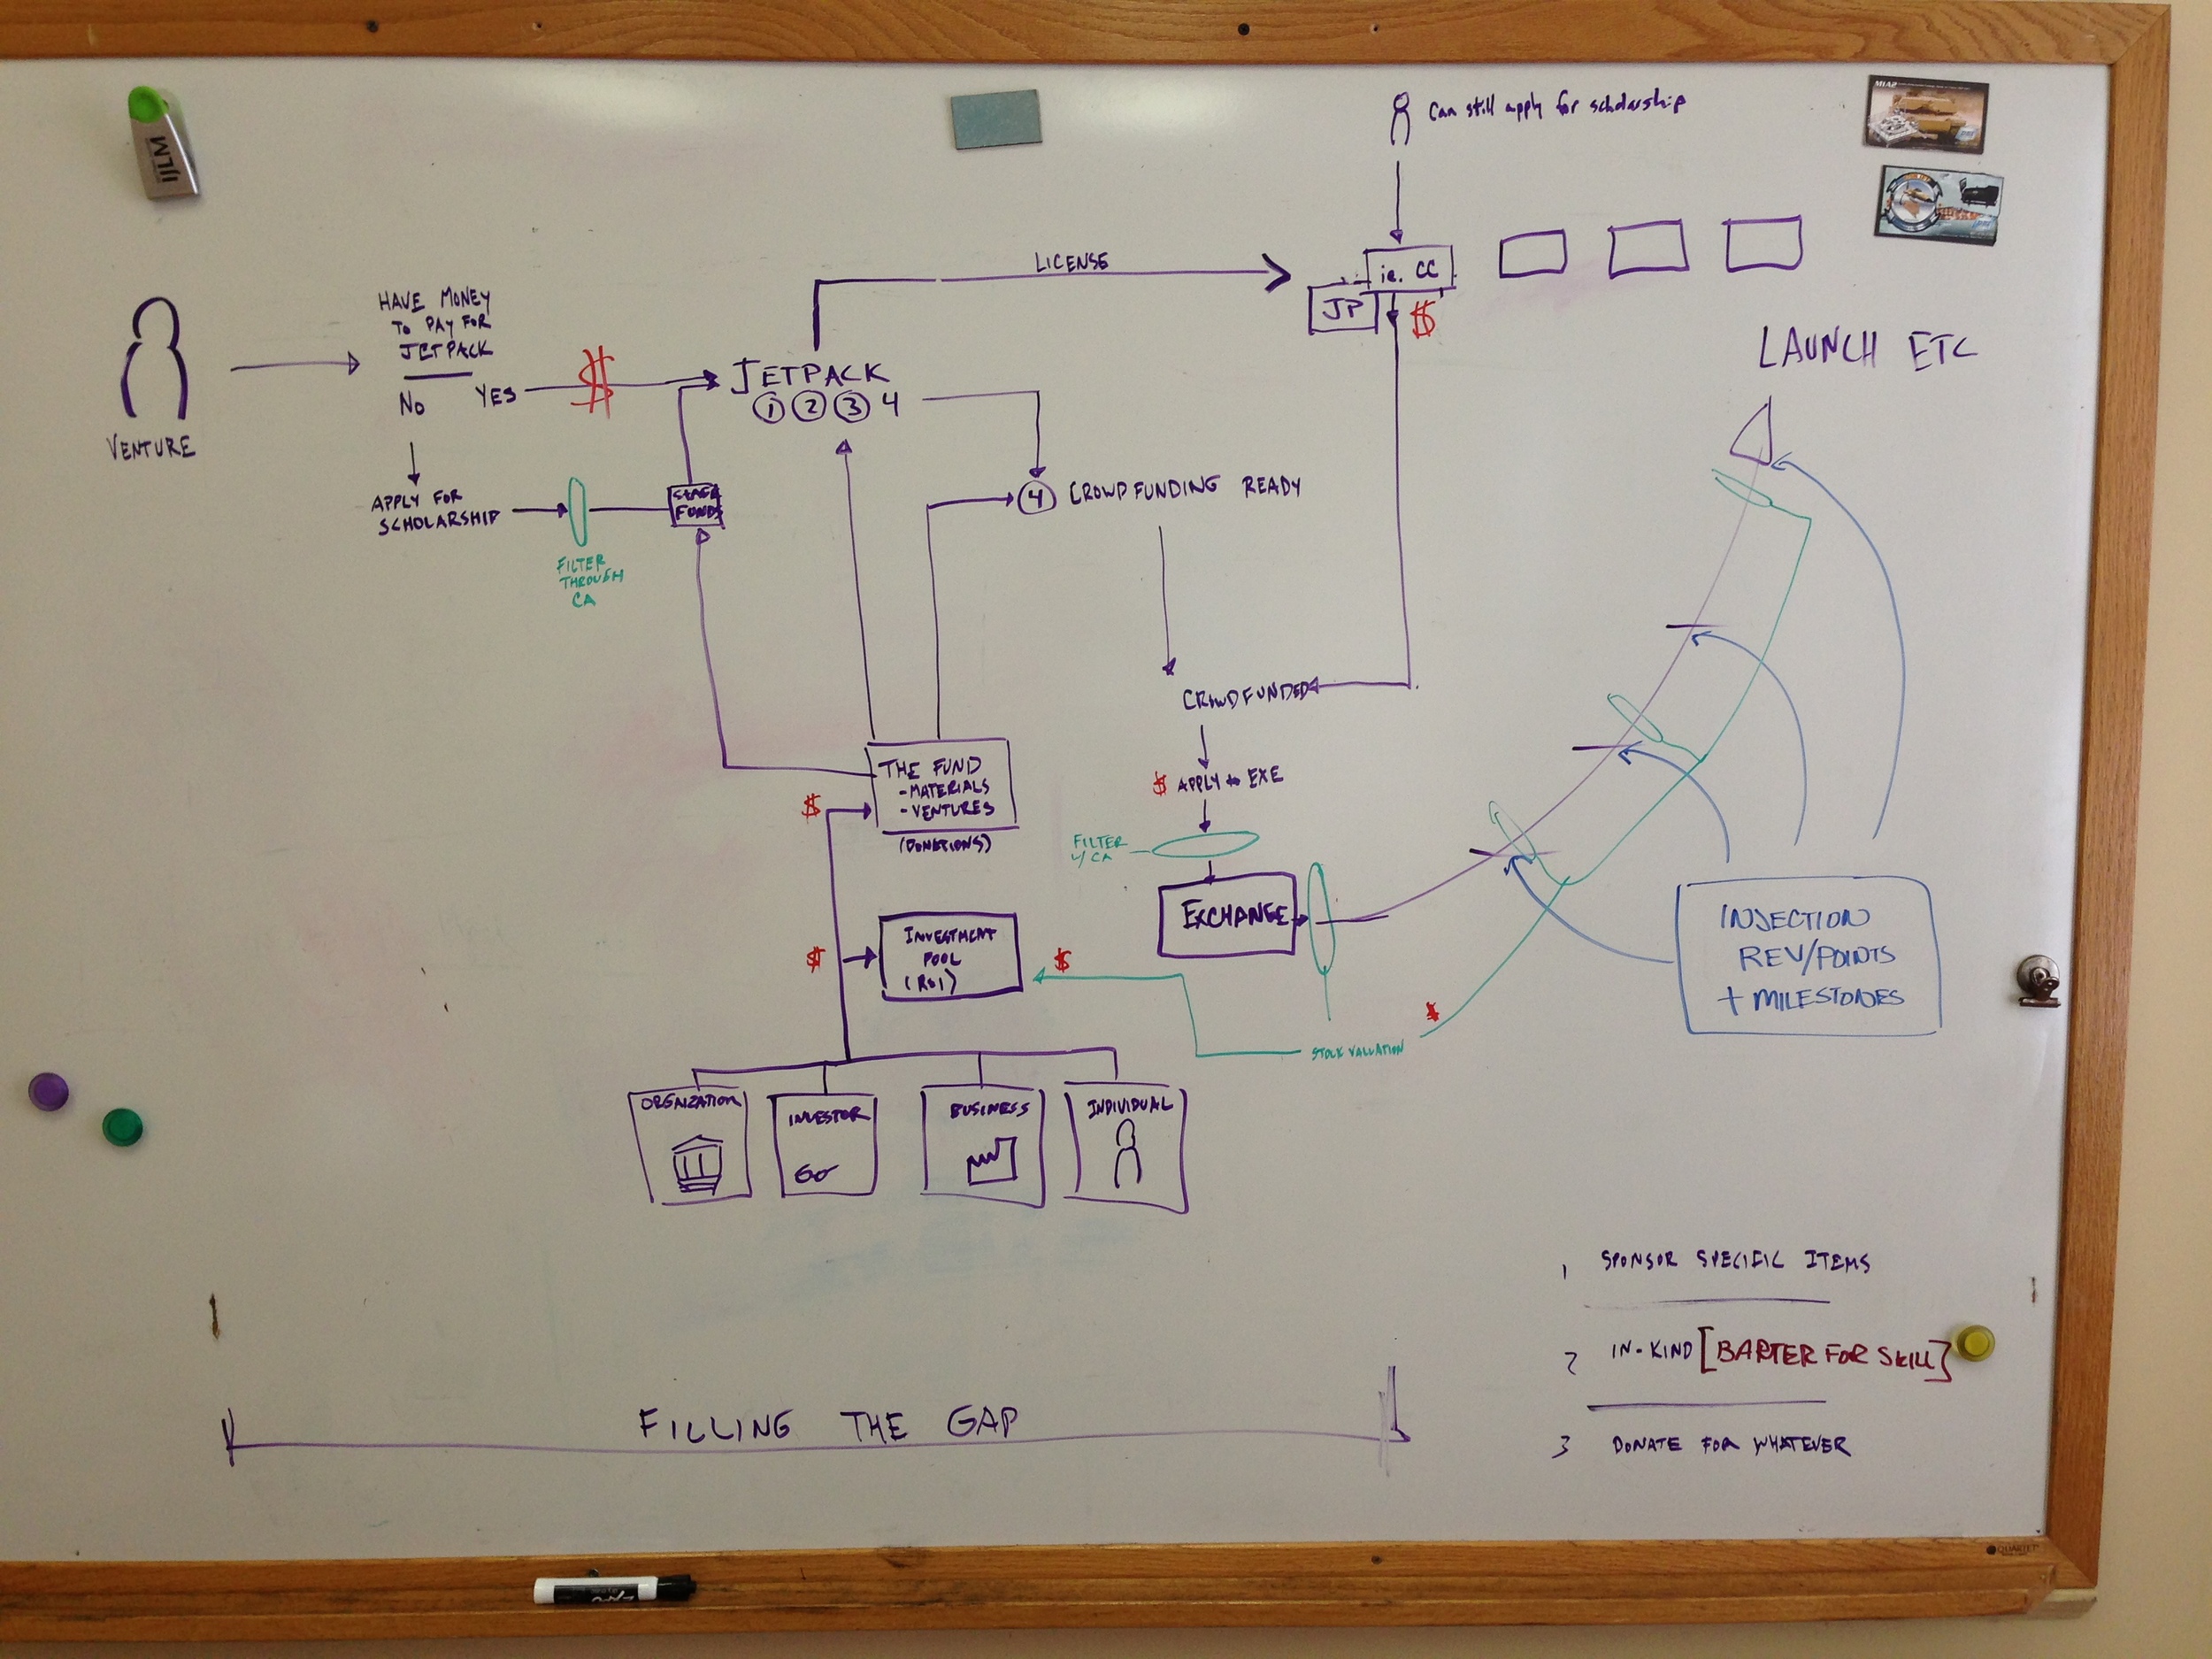 IJLM
M1A2
Can still apply for scholarship
LICENSE
ie. CC
JP
$
HAVE MONEY
TO PAY FOR
JETPACK
NO
YES
$
JETPACK
1 2 3 4
VENTURE
LAUNCH ETC
APPLY FOR
SCHOLARSHIP
FUNDS
4 CROWDFUNDING READY
FILTER
THROUGH
CA
CROWDFUNDED
$ APPLY to EXE
THE FUND
-MATERIALS
-VENTURES
$
(DONATIONS)
FILTER
w/ CA
EXCHANGE
INVESTMENT
POOL
(ROI)
$
$
INJECTION
REV/POINTS
+ MILESTONES
$
STOCK VALUATION
ORGAIZATION
INVESTOR
BUSINESS
INDIVIDUAL
1 SPONSOR SPECIFIC ITEMS
2 IN-KIND [BARTER FOR SKILL]
3 DONATE FOR WHATEVER
FILLING THE GAP
QUARTET